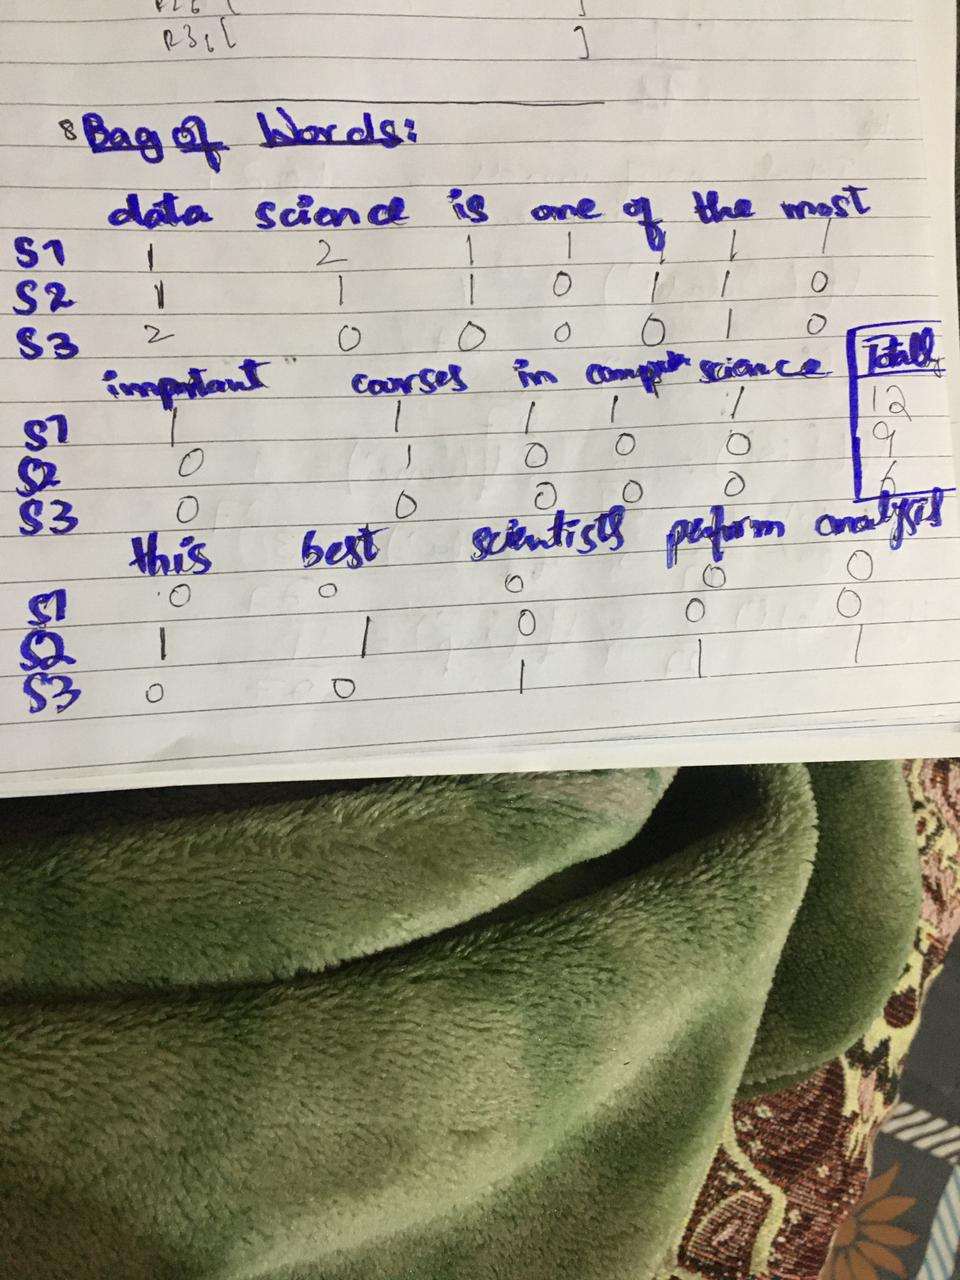 R3{ ]
8 Bag of Words:
data science is one of the most
S1 1 2 1 1 1 1 1
S2 1 1 1 0 1 1 0
S3 2 0 0 0 0 1 0
important courses in science Totally
S1 1 1 1 1 1 12
S2 0 1 0 0 0 9
S3 0 0 0 0 0 6
this best scientists perform analysis
S1 0 0 0 0 0
S2 1 1 0 0 0
S3 0 0 1 1 1